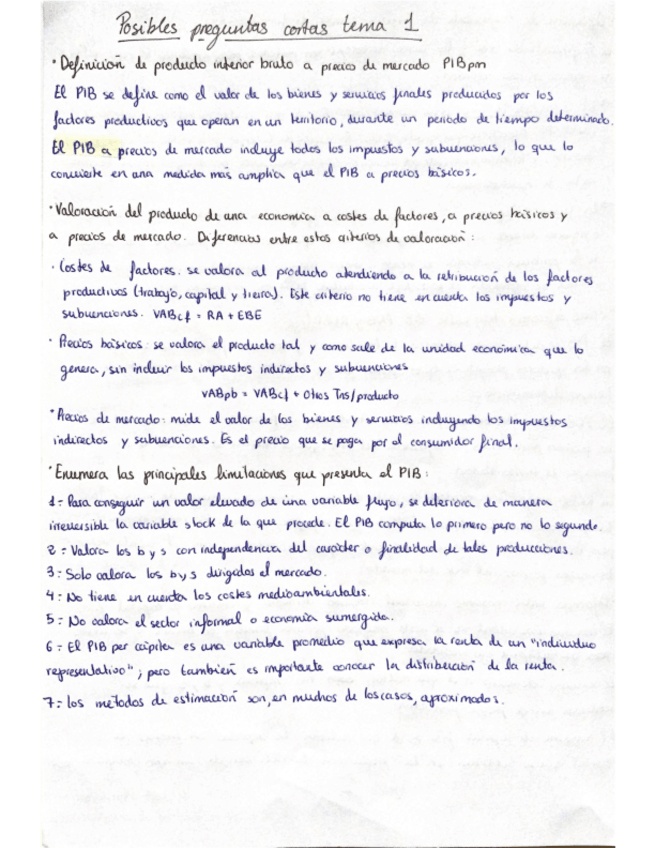 Posibles preguntas cortas tema 1
· Definición de producto interior bruto a precios de mercado PIBpm
El PIB se define como el valor de los bienes y servicios finales producidos por los
factores productivos que operan en un territorio, durante un periodo de tiempo determinado.
El PIB a precios de mercado incluye todos los impuestos y subvenciones, lo que lo
convierte en una medida más amplia que el PIB a precios básicos.
· Valoración del producto de una economía a costes de factores, a precios básicos y
a precios de mercado. Diferencias entre estos criterios de valoración:
· Costes de factores: se valora al producto atendiendo a la retribución de los factores
productivos (trabajo, capital y tierra). Este criterio no tiene en cuenta los impuestos y
subvenciones. VABcf = RA + EBE
· Precios básicos: se valora el producto tal y como sale de la unidad económica que lo
genera, sin incluir los impuestos indirectos y subvenciones
VABpb = VABcf + Otros Tns/producto
· Precios de mercado: mide el valor de los bienes y servicios incluyendo los impuestos
indirectos y subvenciones. Es el precio que se paga por el consumidor final.
· Enumera las principales limitaciones que presenta el PIB:
1 = Para conseguir un valor elevado de una variable flujo, se deteriora de manera
irreversible la variable stock de la que procede. El PIB computa lo primero pero no lo segundo.
2 = Valora los b y s con independencia del carácter o finalidad de tales producciones.
3 = Solo valora los b y s dirigidos al mercado.
4 = No tiene en cuenta los costes medioambientales.
5 = No valora el sector informal o economía sumergida.
6 = El PIB per cápita es una variable promedio que expresa la renta de un "individuo
representativo"; pero también es importante conocer la distribución de la renta.
7 = los métodos de estimación son, en muchos de los casos, aproximados.